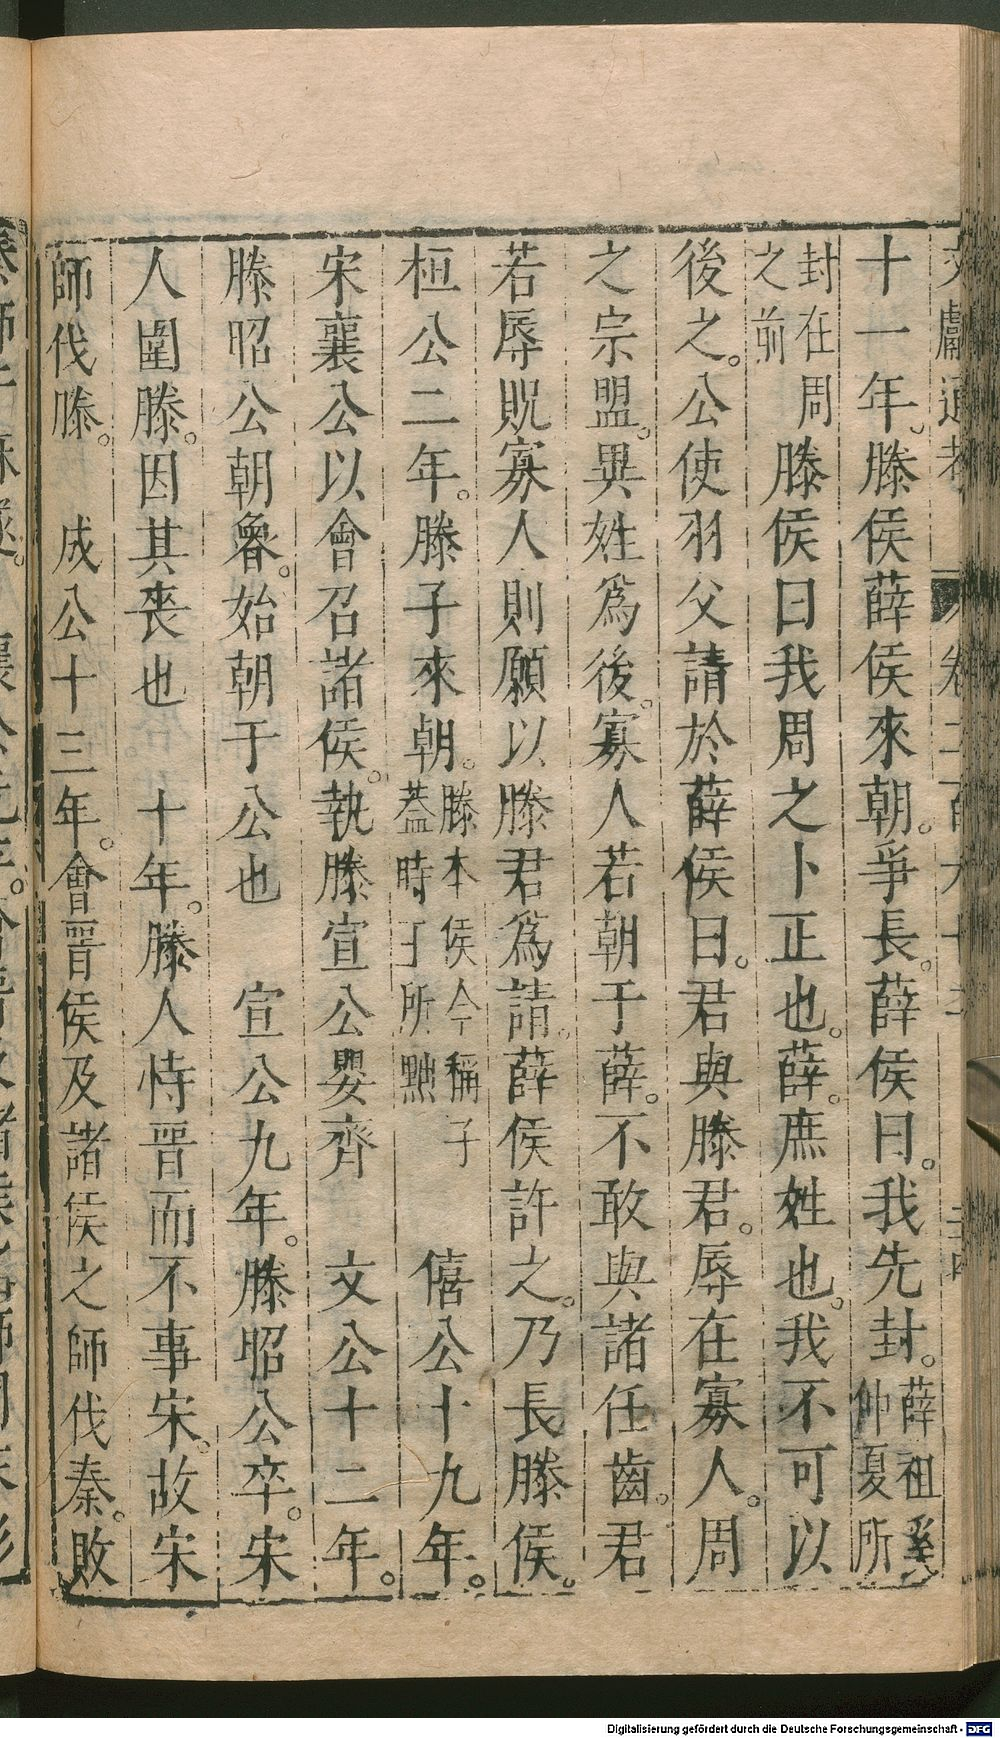 十一年滕侯薛侯來朝爭長薛侯曰我先封薛祖奚仲夏所
封在周之前滕侯曰我周之卜正也薛庶姓也我不可以
後之公使羽父請於薛侯曰君與滕君辱在寡人周
之宗盟異姓爲後寡人若朝于薛不敢與諸任齒君
若辱貺寡人則願以滕君爲請薛侯許之乃長滕侯
桓公二年滕子來朝滕本侯今稱子蓋時王所黜 僖公十九年
宋襄公以會召諸侯執滕宣公嬰齊 文公十二年
滕昭公朝魯始朝于公也 宣公九年滕昭公卒宋
人圍滕因其喪也 十年滕人恃晉而不事宋故宋
師伐滕 成公十三年會晉侯及諸侯之師伐秦敗
Digitalisierung gefördert durch die Deutsche Forschungsgemeinschaft - DFG